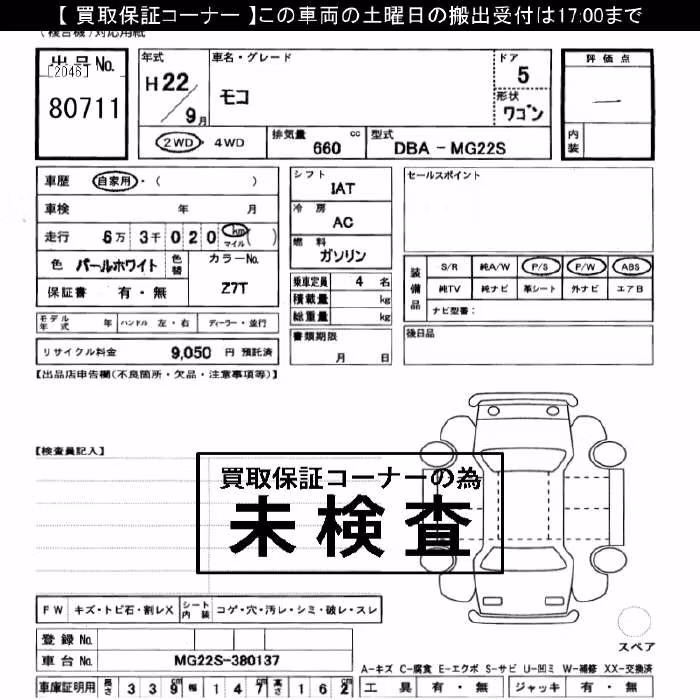 【 買取保証コーナー 】この車両の土曜日の搬出受付は17:00まで
(複合機)対応用紙
出品No.
[2046]
80711
年式
H22/9月
車名・グレード
モコ
ドア
5
形状
ワゴン
評価点
—
内装
2WD・4WD
排気量 cc
660
型式
DBA - MG22S
車歴 自家用・( )
車検 年 月
走行 6万3千020 km マイル( )
色 パールホワイト
色替
カラーNo.
Z7T
保証書 有・無
モデル年式 年 ハンドル 左・右 ディーラー・並行
リサイクル料金 9,050 円 預託済
シフト
IAT
冷房
AC
燃料
ガソリン
乗車定員 4 名
積載量 kg
総重量 kg
書類期限
月 日
セールスポイント
装備品
S/R 純A/W P/S P/W ABS
純TV 純ナビ 革シート 外ナビ エアB
ナビ型番:
後日品
【出品店申告欄(不良箇所・欠品・注意事項等)】
【検査員記入】
買取保証コーナーの為
未検査
FW キズ・トビ石・割レX
シート内装 コゲ・穴・汚レ・シミ・破レ・スレ
登録No.
車台No. MG22S-380137
車庫証明用 長さ 339cm 幅 147cm 高さ 162cm
スペア
A-キズ C-腐食 E-エクボ S-サビ U-凹ミ W-補修 XX-交換済
工具 有・無 ジャッキ 有・無